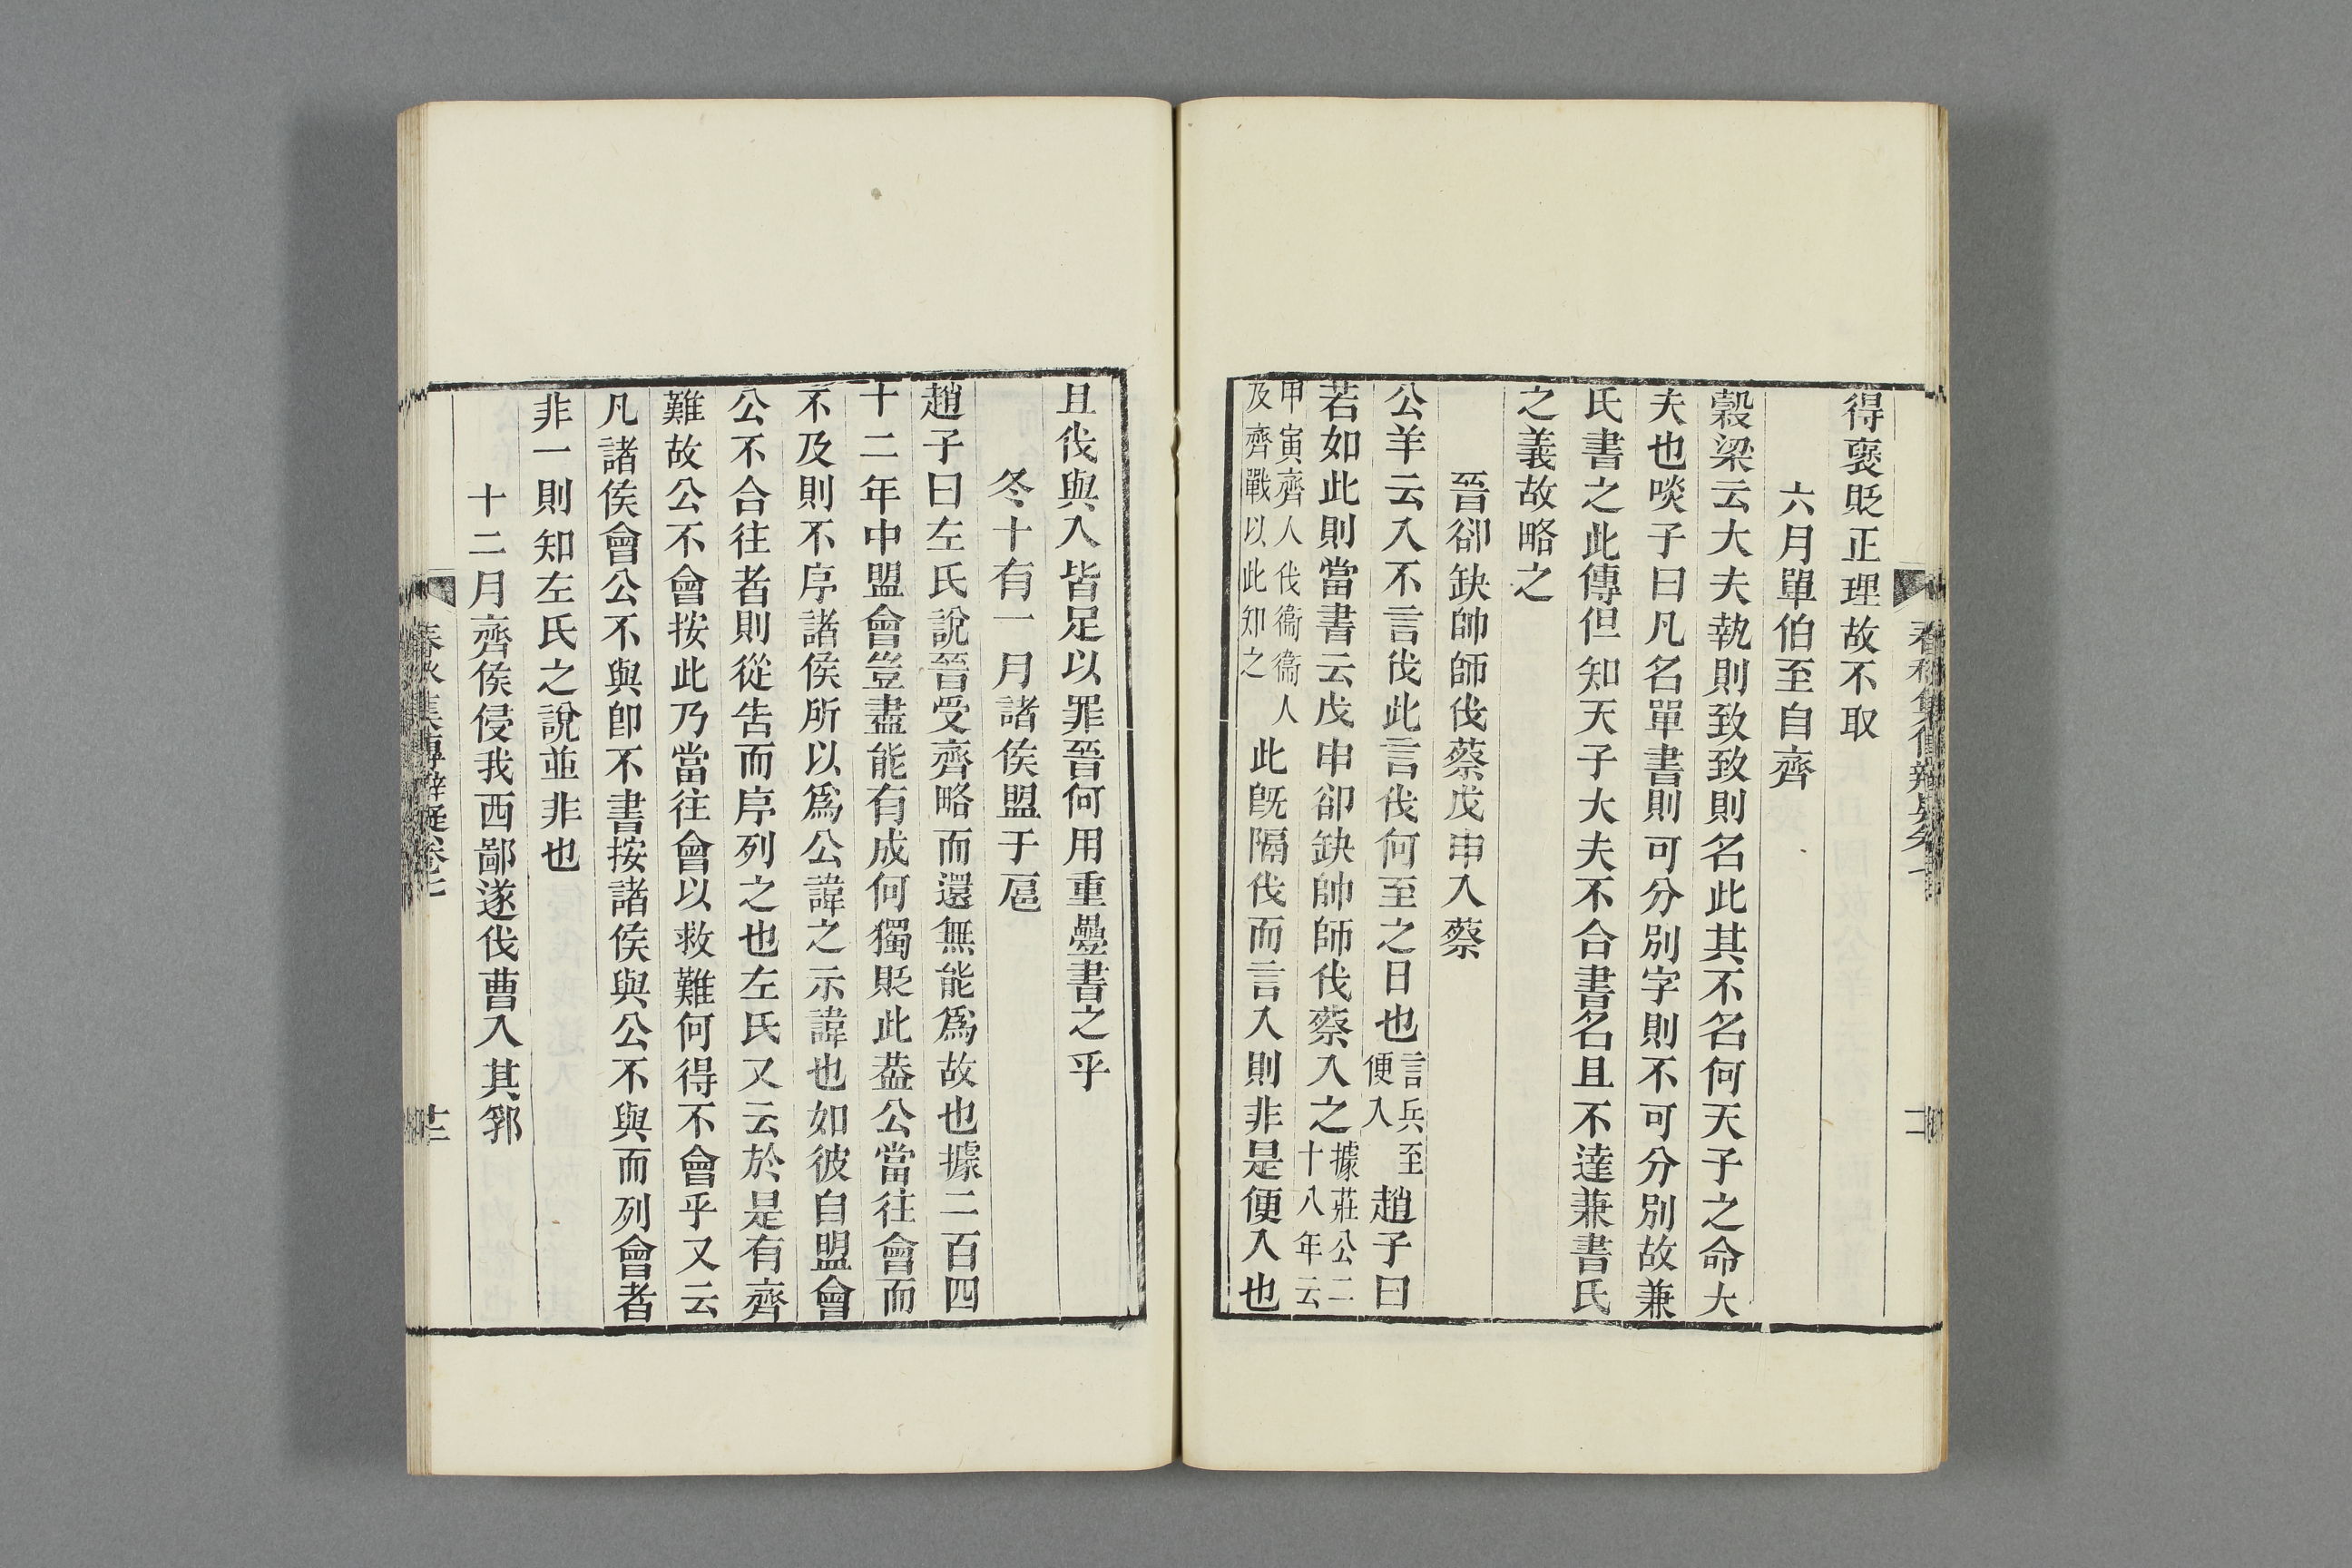 得褒貶正理故不取
六月單伯至自齊
穀梁云大夫執則致致則名此其不名何天子之命大
夫也啖子曰凡名單書則可分別字則不可分別故兼
氏書之此傳但知天子大夫不合書名且不達兼書氏
之義故略之
晉卻缺帥師伐蔡戊申入蔡
公羊云入不言伐此言伐何至之日也言兵至便入趙子曰
若如此則當書云戊申卻缺帥師伐蔡入之據莊公二十八年云
甲寅齊人伐衞衞人及齊戰以此知之此旣隔伐而言入則非是便入也
且伐與入皆足以罪晉何用重疊書之乎
冬十有一月諸侯盟于扈
趙子曰左氏說晉受齊略而還無能爲故也據二百四
十二年中盟會豈盡能有成何獨貶此葢公當往會而
不及則不序諸侯所以爲公諱之示諱也如彼自盟會
公不合往者則從告而序列之也左氏又云於是有齊
難故公不會按此乃當往會以救難何得不會乎又云
凡諸侯會公不與卽不書按諸侯與公不與而列會者
非一則知左氏之說並非也
十二月齊侯侵我西鄙遂伐曹入其郛
春秋集傳辯疑卷七